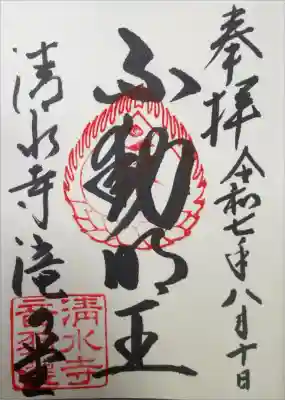 奉拝 令和七年八月十日
不動明王
清水寺 滝の堂
清水寺